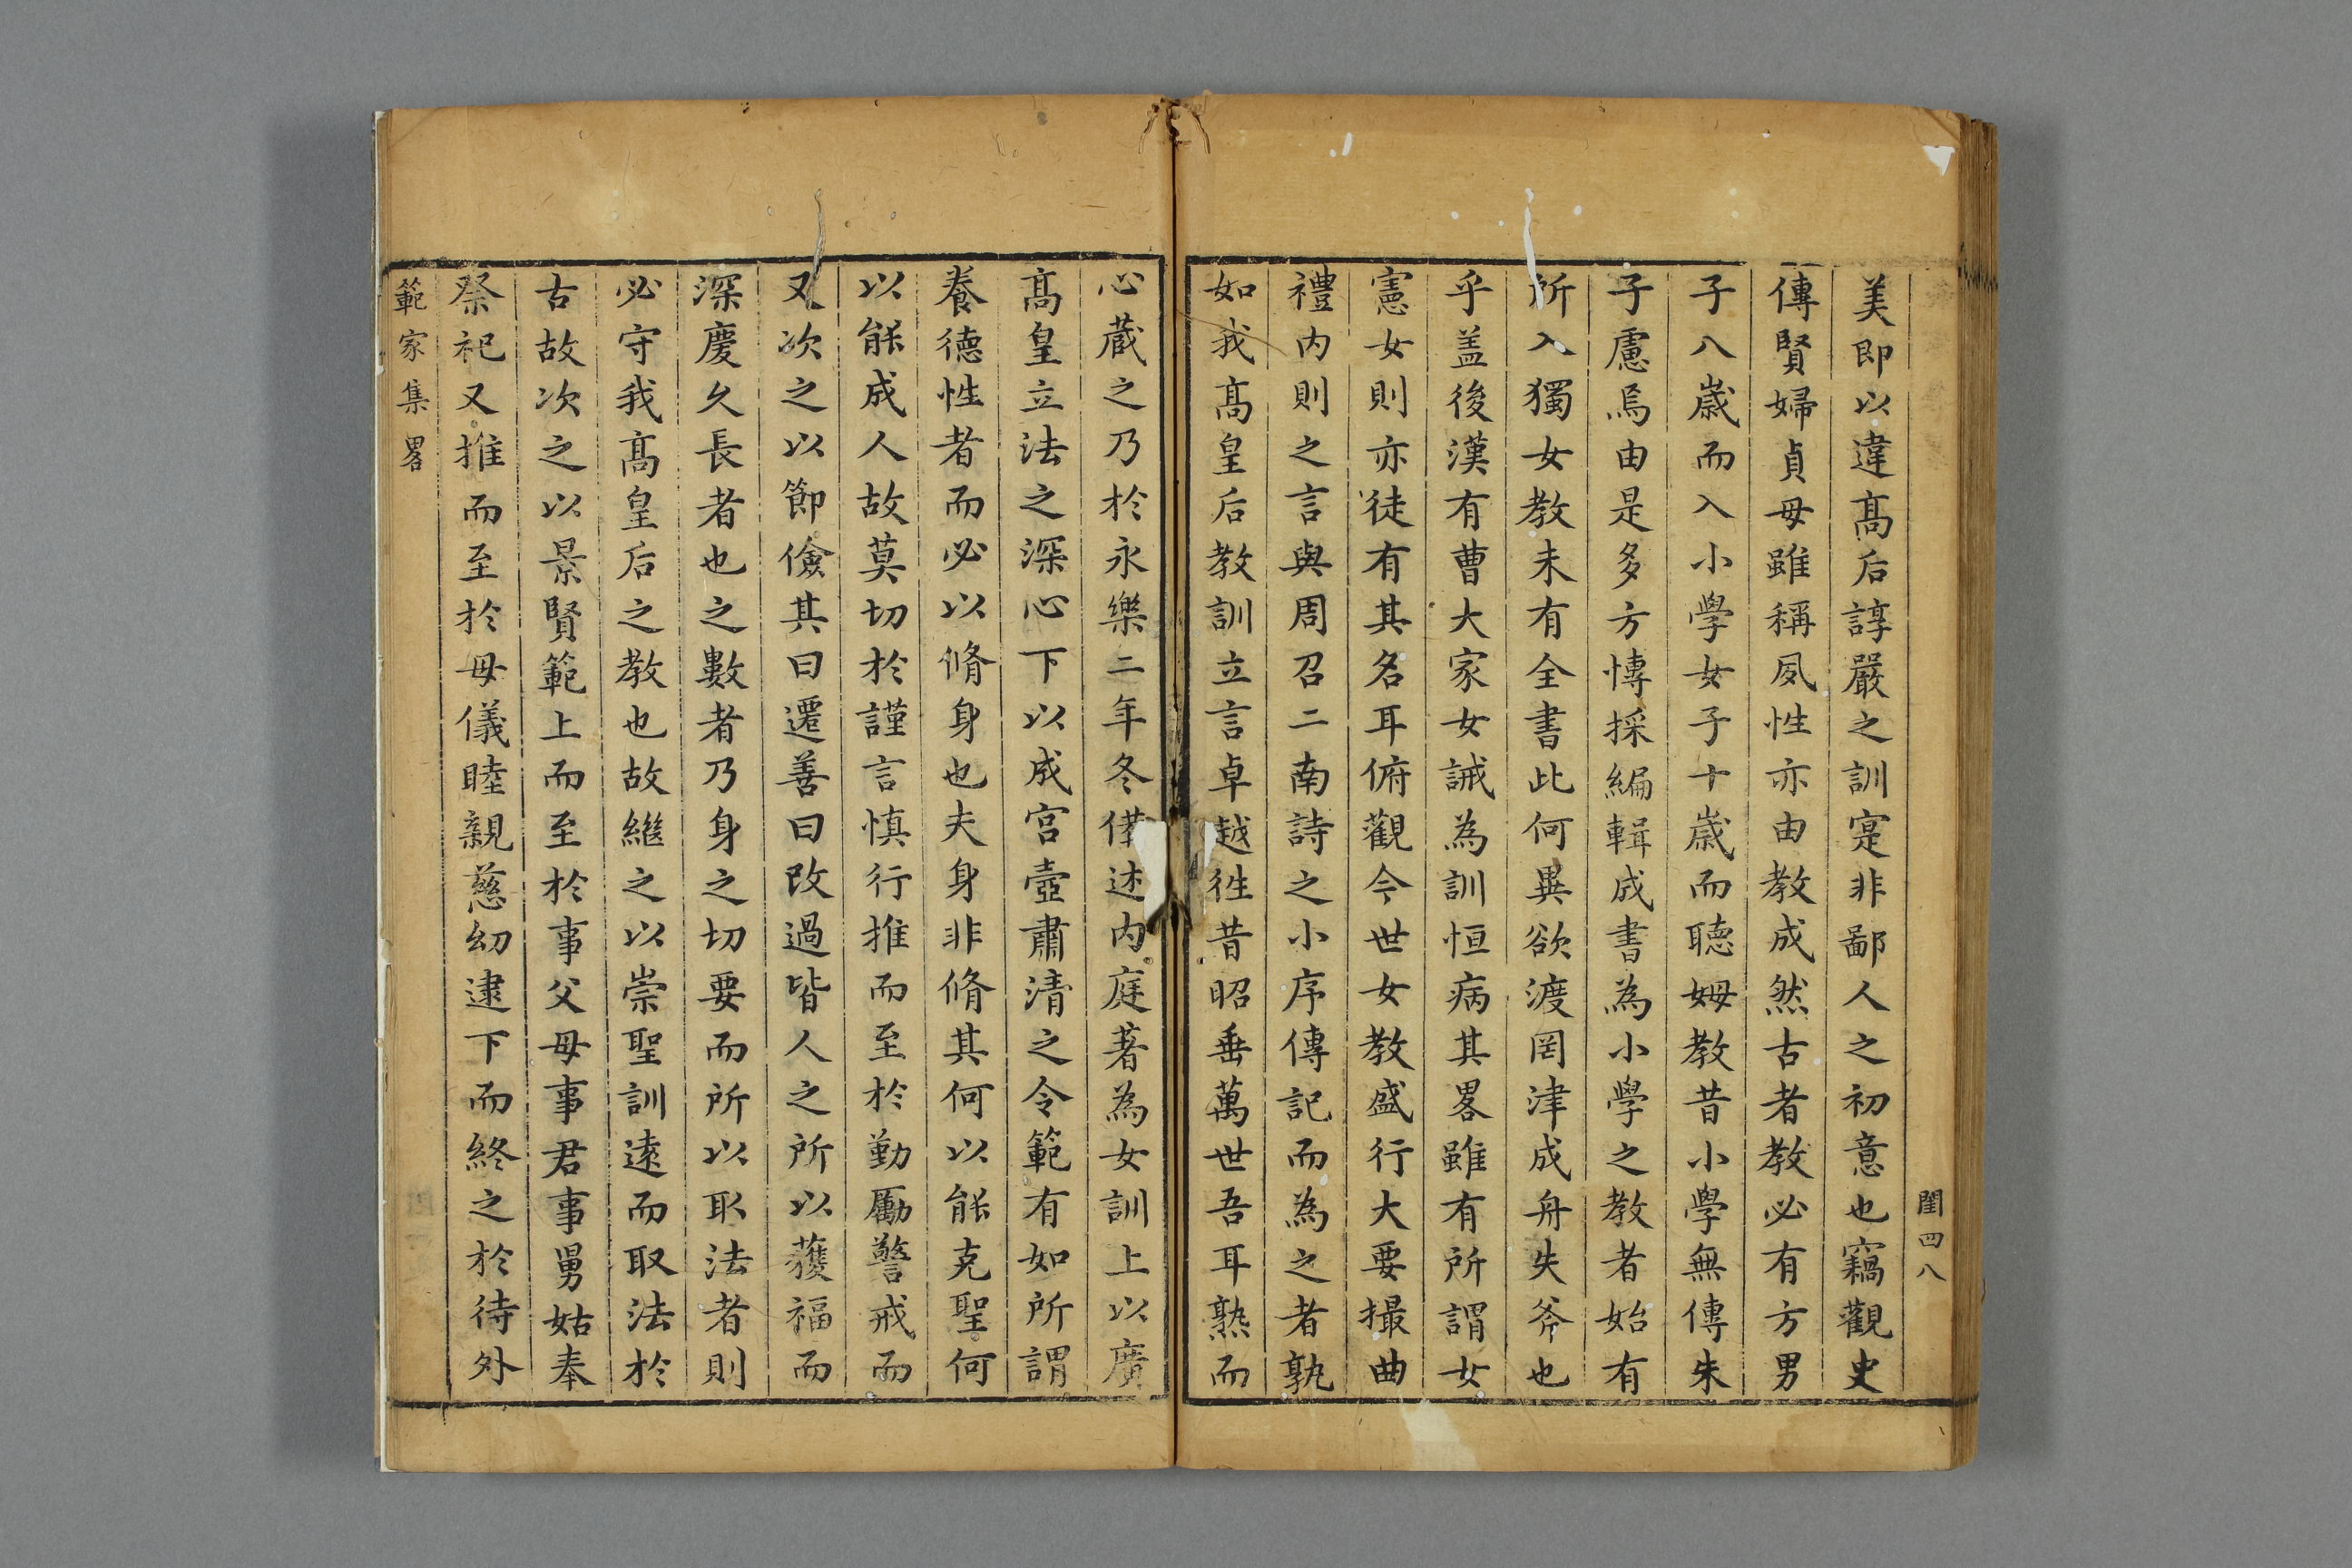 閨四八
美即以違高后諄嚴之訓寔非鄙人之初意也竊觀史
傳賢婦貞母雖稱夙性亦由教成然古者教必有方男
子八歲而入小學女子十歲而聽姆教昔小學無傳朱
子慮焉由是多方慱採編輯成書為小學之教者始有
所入獨女教未有全書此何異欲渡罔津成舟失斧也
乎盖後漢有曹大家女誡為訓恒病其畧雖有所謂女
憲女則亦徒有其名耳俯觀今世女教盛行大要撮曲
禮内則之言與周召二南詩之小序傳記而為之者孰
如我髙皇后教訓立言卓越徃昔昭垂萬世吾耳熟而
心藏之乃於永樂二年冬僕述内庭著為女訓上以廣
髙皇立法之深心下以成宫壼肅清之令範有如所謂
養德性者而必以脩身也夫身非脩其何以能克聖何
以能成人故莫切於謹言慎行推而至於勤勵警戒而
又次之以節儉其曰遷善曰改過皆人之所以獲福而
深慶久長者也之數者乃身之切要而所以取法者則
必守我髙皇后之教也故繼之以崇聖訓遠而取法於
古故次之以景賢範上而至於事父母事君事舅姑奉
祭祀又推而至於母儀睦親慈幼逮下而終之於待外
範家集畧